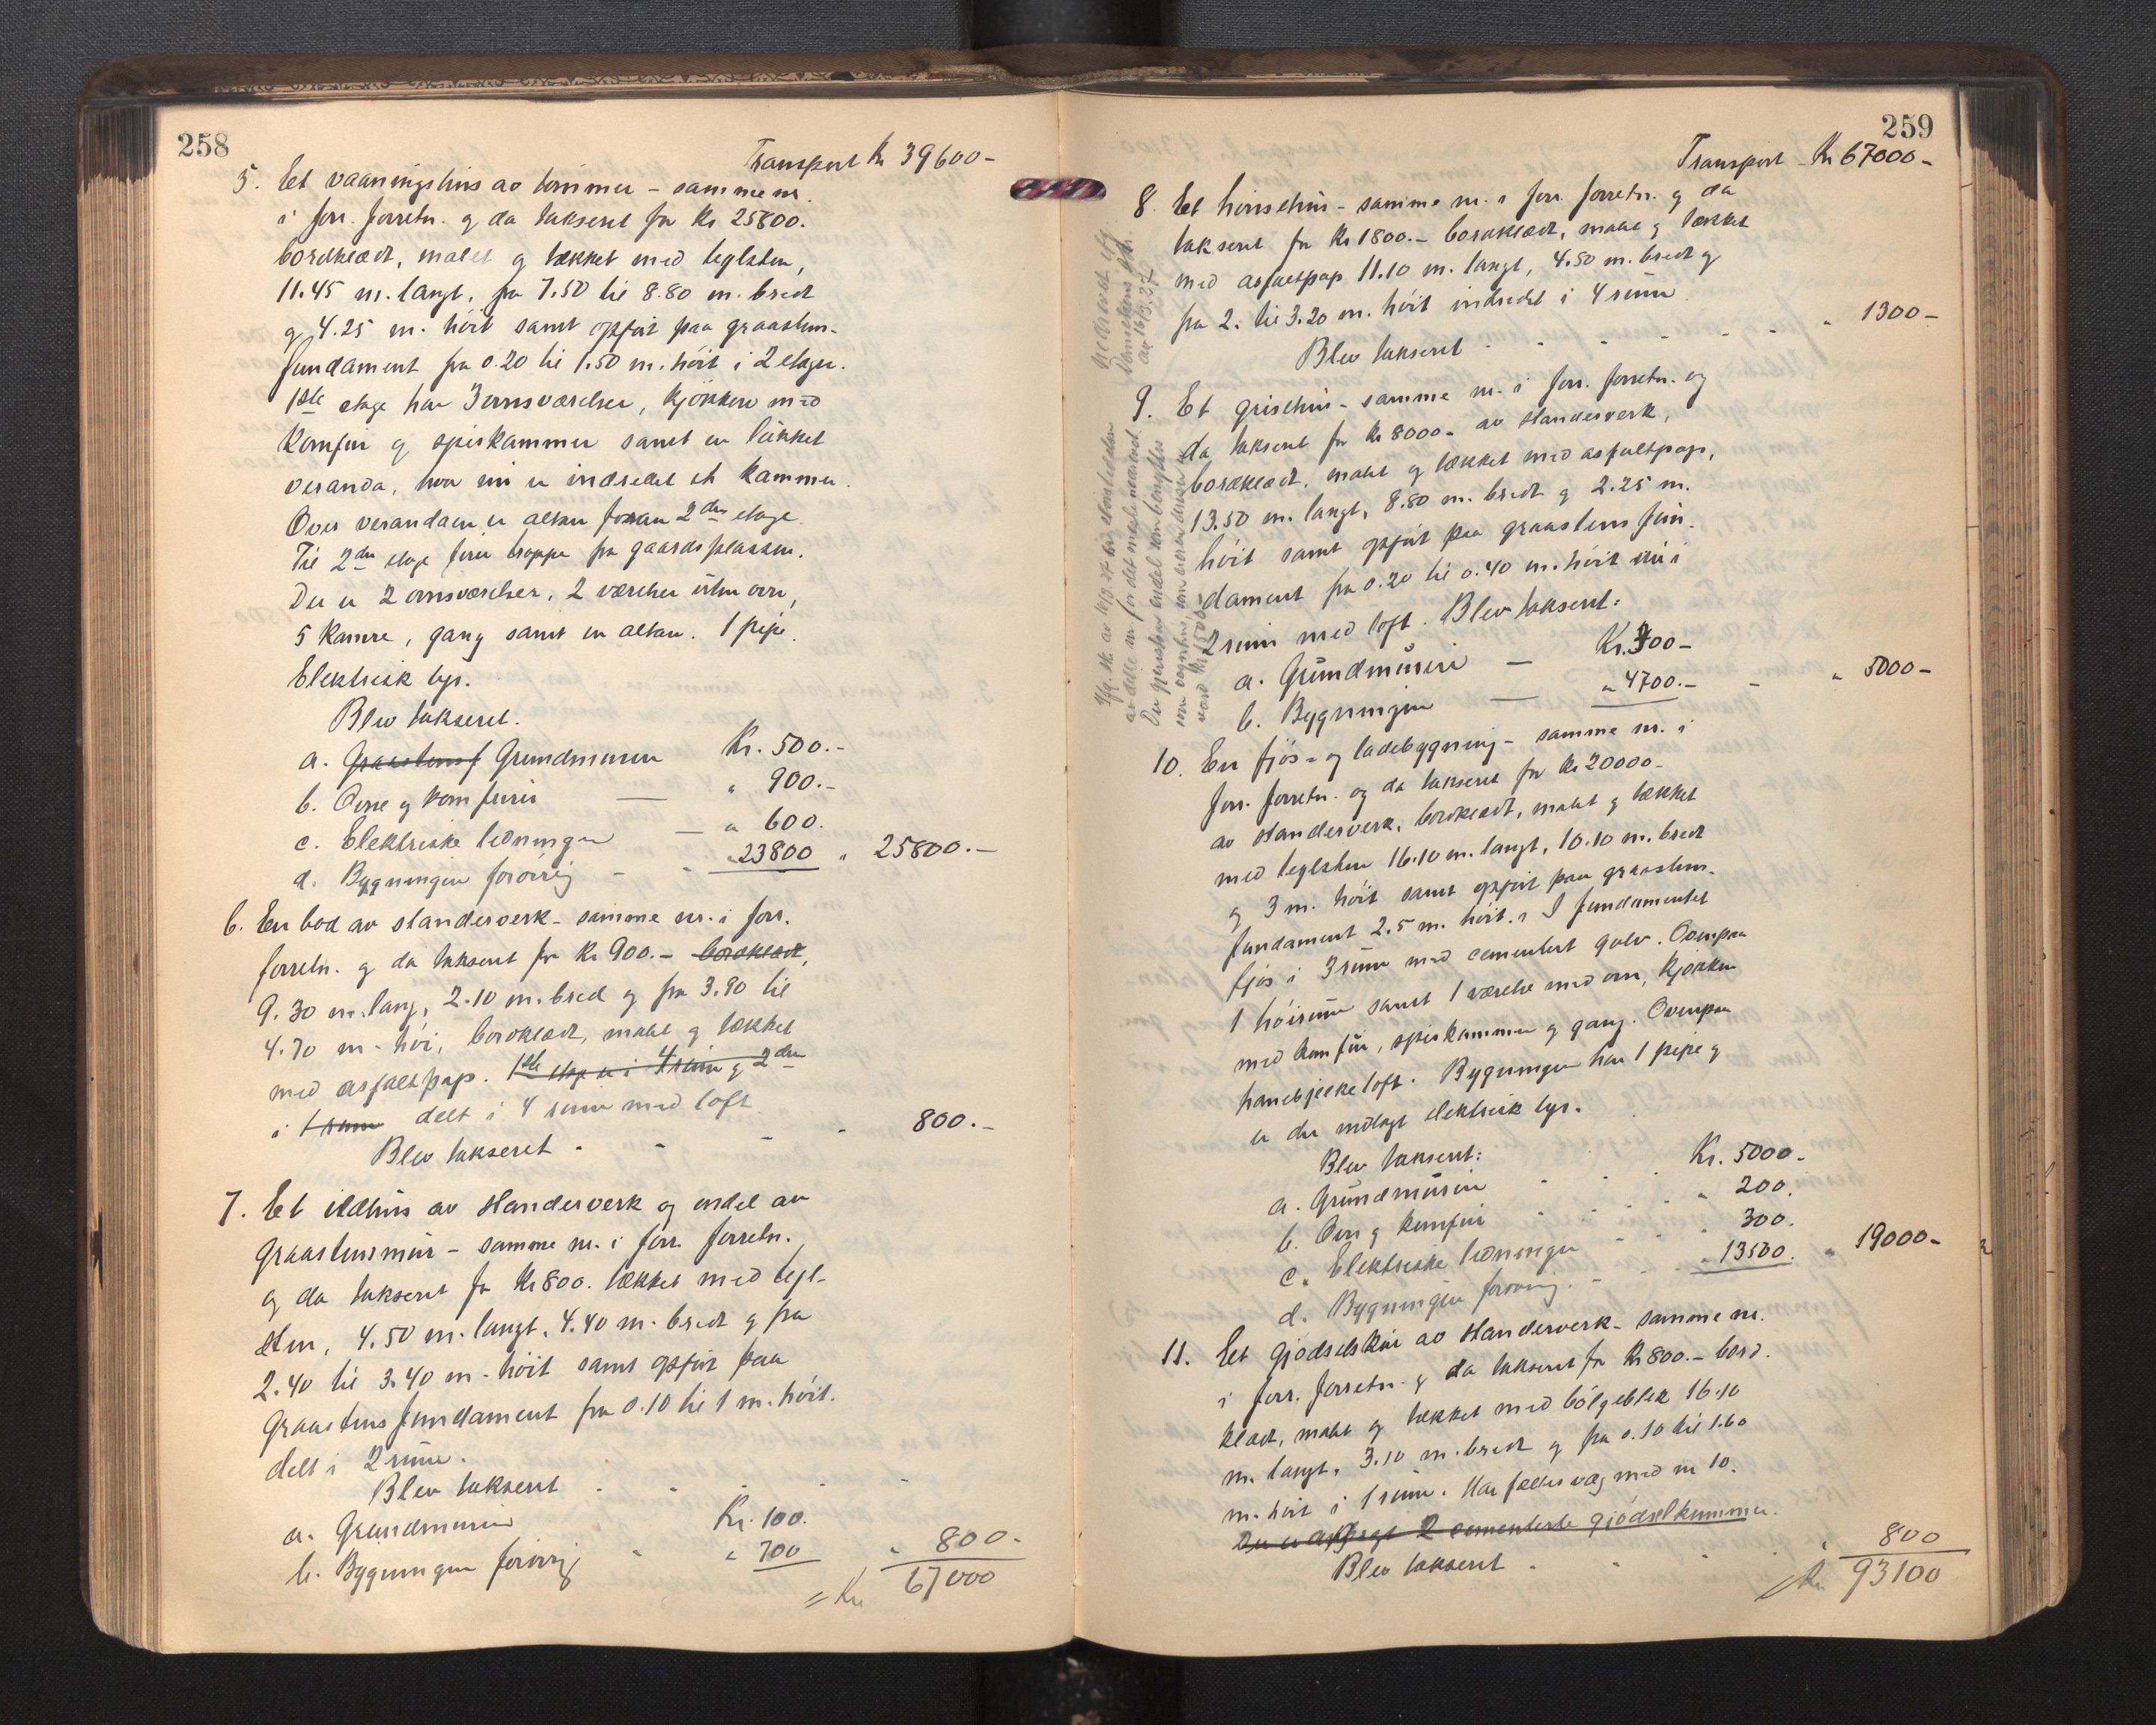 258
Transport Kr 39600-
5. Et vaaningshus av tømmer - samme nr.
i forr. forretn. og da takseret for Kr 25800.
bordklædt, malet og tækket med teglsten,
11.45 m. langt, fra 7.50 til 8.80 m. bredt
og 4.25 m. höit samt opfört paa graastens-
fundament fra 0.20 til 1.50 m. höit i 2 etager.
1ste etage har 3 ovnsværelser, kjökken med
Komfur og spiskammer samt en lukket
veranda, hvor nu er indredet et kammer.
Over verandaen er altan foran 2den etage.
Til 2den etage förer trappe fra gaardsplassen.
Der er 2 ovnsværelser, 2 værelser uten ovn,
5 kamre, gang samt en altan. 1 pipe.
Elektrisk lys.
Blev takseret.
a. Graastensf Grundmuren Kr. 500.-
b. Ovne og komfurer — " 900.-
c. Elektriske ledninger — " 600.
d. Bygningen forövrig - - " 23800 " 25800.-
6. En bod av standerverk - samme nr. i forr.
forretn. og da takseret for Kr 900.- bordklædt,
9.30 m. lang, 2.10 m. bred og fra 3.90 til
4.70 m. höi, bordklædt, malet og tækket
med asfaltpap. 1ste etage er i 4 rum og 2den
i 1 rum delt i 4 rum med loft
Blev takseret - - - - 800.-
7. Et ildhus av standerverk og endel av
graastensmur - samme nr. i forr. forretn.,
og da takseret for Kr 800. tækket med tegl-
sten, 4.50 m. langt, 4.40 m. bredt og fra
2.40 til 3.40 m. höit samt opfört paa
graastens fundament fra 0.10 til 1 m. höit.
delt i 2 rum.
Blev takseret - - - - -
a. Grundmuren Kr. 100.
b. Bygningen forövrig - " 700 " 800.-
= Kr 67000
259
Transport Kr 67000-
8. Et hönsehus - samme nr. i forr. forretn. og da
takseret for Kr 1800.- bordklædt, malet og tækket
med asfaltpap 11.10 m. langt, 4.50 m. bredt og
fra 2. til 3.20 m. höit indredet i 4 rum.
Blev takseret - - - - - " 1300-
9. Et grisehus - samme nr. i forr. forretn. og
da takseret for Kr 8000- av standerverk,
bordklædt, malet og tækket med asfaltpap,
13.50 m. langt, 8.80 m. bredt og 2.25 m.
höit samt opfört paa graastens fun-
dament fra 0.20 til 0.40 m. höit nu i
2 rum med loft. Blev takseret:
a. Grundmuren — Kr. 300-
b. Bygningen — " 4700.- - " 5000-
10. En fjös- og ladebygning - samme nr. i
forr. forretn. og da takseret for Kr 20000-
av standerverk, bordklædt, malet og tækket
med teglsten 16.10 m. langt, 10.10 m. bredt
og 3 m. höit samt opfört paa graastens-
fundament 2.5 m. höit. I fundamentet
fjös i 3 rum med cementert gulv. Ovenpaa
1 höirum samt 1 værelse med ovn, kjökken
med komfur, spiskammer og gang. Ovenpaa
hanebjelkeloft. Bygningen har 1 pipe og
er der indlagt elektrisk lys.
Blev takseret:
a. Grundmuren - - - Kr. 5000-
b. Ovn og komfur - - - " 200.
c. Elektriske ledninger - - - 300.
d. Bygningen forövrig. - - - " 13500. " 19000-
11. Et gjödselskur av standerverk - samme nr.
i forr. forretn. og da takseret for Kr 800.- bord-
klædt, malet og tækket med bölgeblek 16.10
m. langt, 3.10 m. bredt og fra 0.10 til 1.60
m. höit i 1 rum. Har fælles væg med nr 10.
Der er anbragt 2 cementerte gjödselkummer.
Blev takseret - - - - 800
Kr 93100